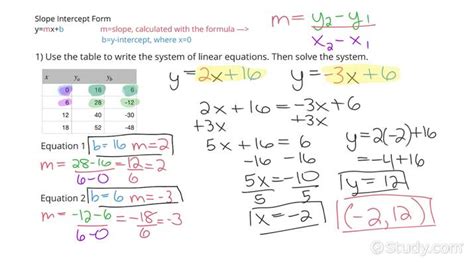 Slope Intercept Form
y=mx+b
m=slope, calculated with the formula —>
b=y-intercept, where x=0
m = y₂ - y₁
x₂ - x₁
1) Use the table to write the system of linear equations. Then solve the system.
x yₐ y_b
0 16 6
6 28 -12
12 40 -30
18 52 -48
y = 2x + 16
y = -3x + 6
2x + 16 = -3x + 6
+3x +3x
5x + 16 = 6
-16 -16
5x = -10
5 5
x = -2
y = 2(-2) + 16
= -4 + 16
y = 12
(-2, 12)
Equation 1 b = 16 m = 2
m = 28-16 = 12 = 2
6-0 6
Equation 2 b = 6 m = -3
m = -12-6 = -18 = -3
6-0 6
Study.com